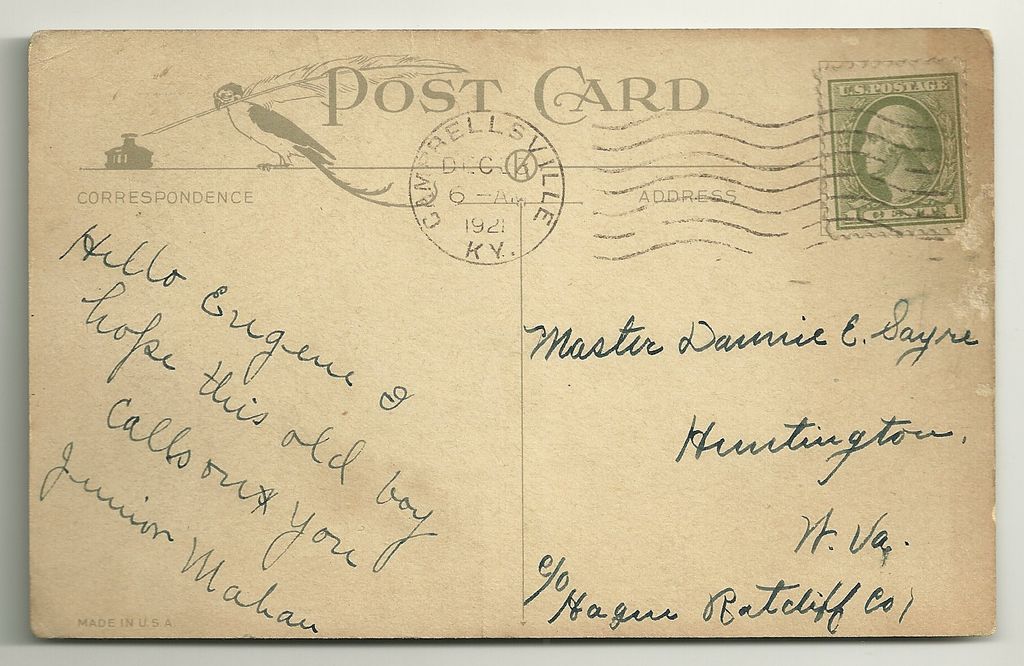 POST CARD
CAMPBELLSVILLE
DEC
6 - AM
1921
KY.
U.S. POSTAGE
1 CENT 1
CORRESPONDENCE
ADDRESS
Hello Eugene I
hope this old boy
calls on you
Junior Mahan
Master Dannie E. Sayre
Huntington.
W. Va.
c/o Hague Ratcliff Co
MADE IN U.S.A